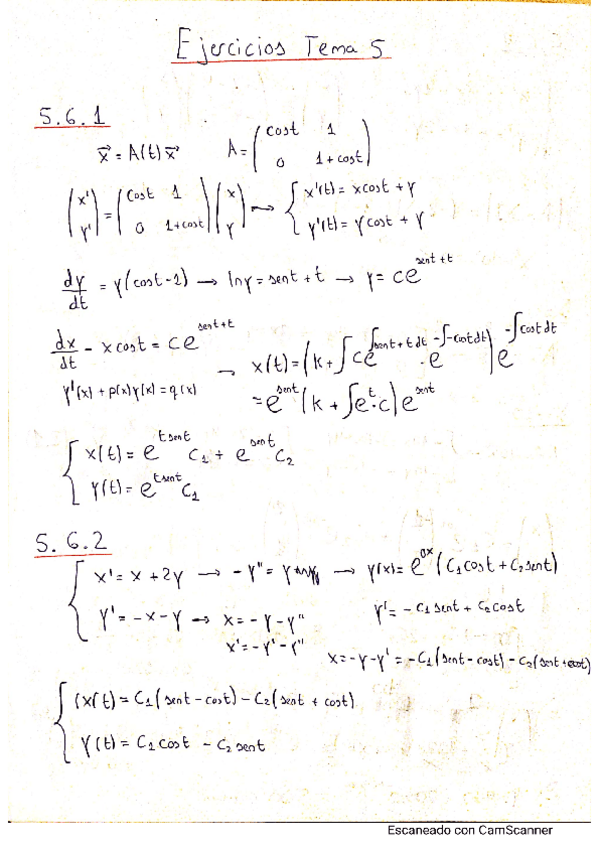 Ejercicios Tema 5
5.6.1
x⃗ = A(t) x⃗    A = ( cost 1 ; 0 1+cost )
( x' ; y' ) = ( cost 1 ; 0 1+cost ) ( x ; y ) → { x'(t) = x cost + y ; y'(t) = y cost + y
dy/dt = y(cost-1) → ln y = sent + t → y = ce^(sent+t)
dx/dt - x cost = ce^(sent+t)
y'(x) + p(x)y(x) = q(x)
→ x(t) = (k + ∫ ce^(∫sent+t dt) · e^(-∫-cost dt)) e^(-∫cost dt)
= e^(sent) (k + ∫e^t·c) e^(sent)
{ x(t) = e^(t sent) C1 + e^(sent) C2
y(t) = e^(t sent) C1
5.6.2
{ x' = x + 2y → -y'' = y → y(x) = e^(0x) (C1 cost + C2 sent)
y' = -x - y → x = -y - y''    y' = -C1 sent + C2 cost
x' = -y' - y''    x = -y - y' = -C1(sent - cost) - C2(sent + cost)
{ (x(t) = C1(sent - cost) - C2(sent + cost)
y(t) = C1 cost - C2 sent
Escaneado con CamScanner